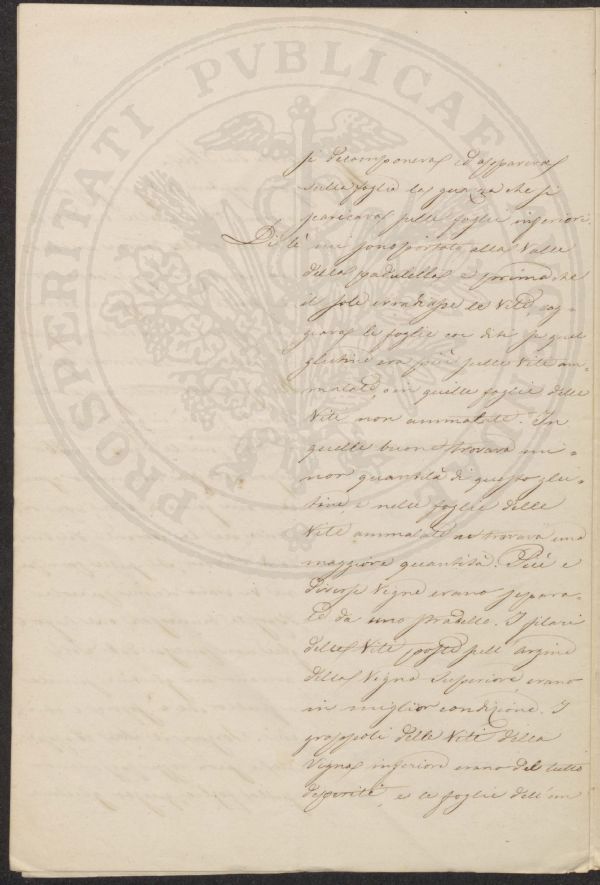 PROSPERITATI PVBLICAE
si decomponeva ed appariva
sulla foglia la guazza che si
scaricava sulle foglie inferiori.
Di là mi sono portato alla Valle
della padulella e prima che
il sole irradiasse le Viti, sag-
giava le foglie coi diti se quel
glutine era più sulle Viti am-
malate, o in quelle foglie delle
Viti non ammalate. In
quelle buone trovava mi-
nor quantità di questo glu-
tine, e nelle foglie delle
Viti ammalate ne trovava una
maggiore quantità. Più e
diverse Vigne erano separa-
te da uno stradello. I filari
delle Viti poste sull' argine
della Vigna Superiore, erano
in miglior condizione. I
grappoli delle Viti della
Vigna inferiore erano del tutto
deperiti, e le foglie dell' un